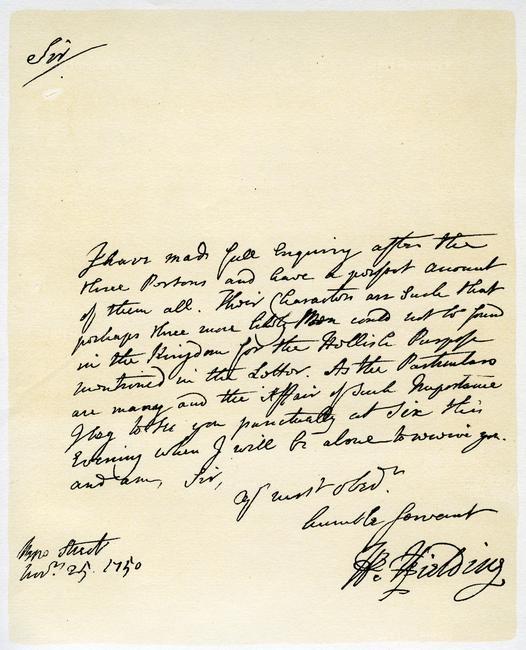 Sir
I have made full Enquiry after the
three Persons and have a perfect account
of them all. Their Characters are such that
perhaps three more likely Men could not be found
in the Kingdom for the Hellish Purpose
mentioned in the Letter. As the Particulars
are many and the Affair of such Importance
I beg to see you punctually at Six this
Evening when I will be alone to receive you.
and am, Sir,
yr most obedt
humble Servant
He Ffielding
Bow Street
Novr. 25. 1750